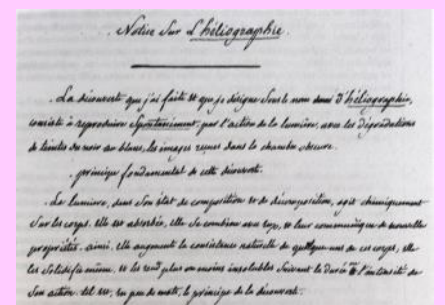 Notice sur L'héliographie.
. La découverte que j'ai faite et que je désigne sous le nom d'héliographie,
consiste à reproduire spontanément, par l'action de la lumière, avec les dégradations
de teintes du noir au blanc, les images reçues dans la chambre obscure.
. principe fondamental de cette découverte.
. La lumière, dans son état de composition et de décomposition, agit chimiquement
sur les corps. elle est absorbée, elle se combine avec eux, et leur communique de nouvelles
propriétés. ainsi, elle augmente la consistance naturelle de quelques-uns de ces corps, elle
les solidifie même, et les rend plus ou moins insolubles, suivant la durée ou l'intensité de
son action. tel est, en peu de mots, le principe de la découverte.